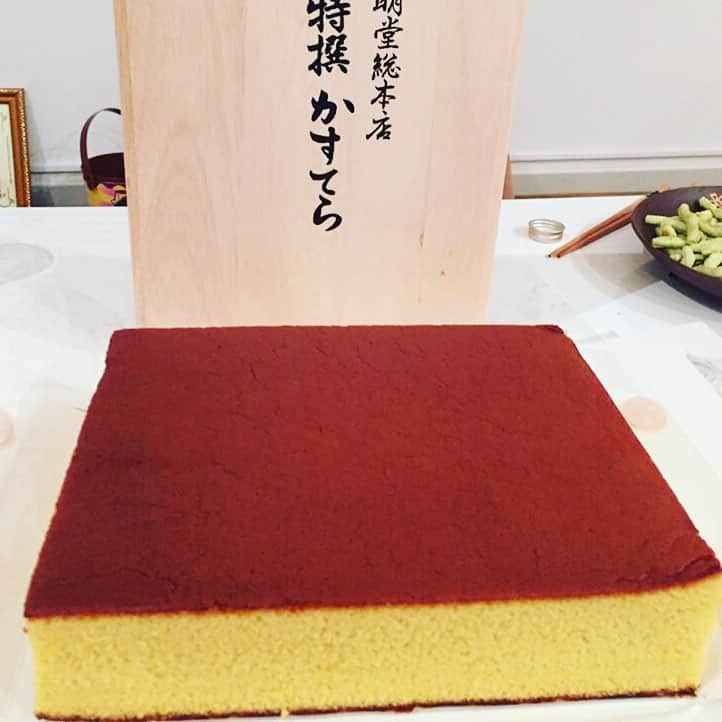 明堂総本店
特撰 かすてら